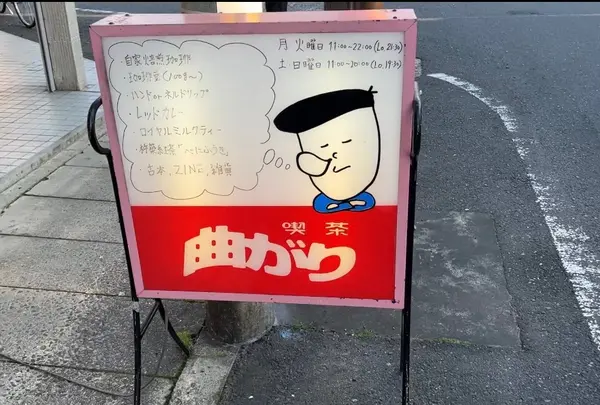 ・自家焙煎珈琲
・珈琲豆(100g〜)
・ハンドorネルドリップ
・レッドカレー
・ロイヤルミルクティー
・和紅茶「べにふうき」
・古本,ZINE,雑貨
月 火曜日 11:00〜22:00(Lo.21:30)
土 日曜日 11:00〜20:00(Lo.19:30)
喫茶
曲がり